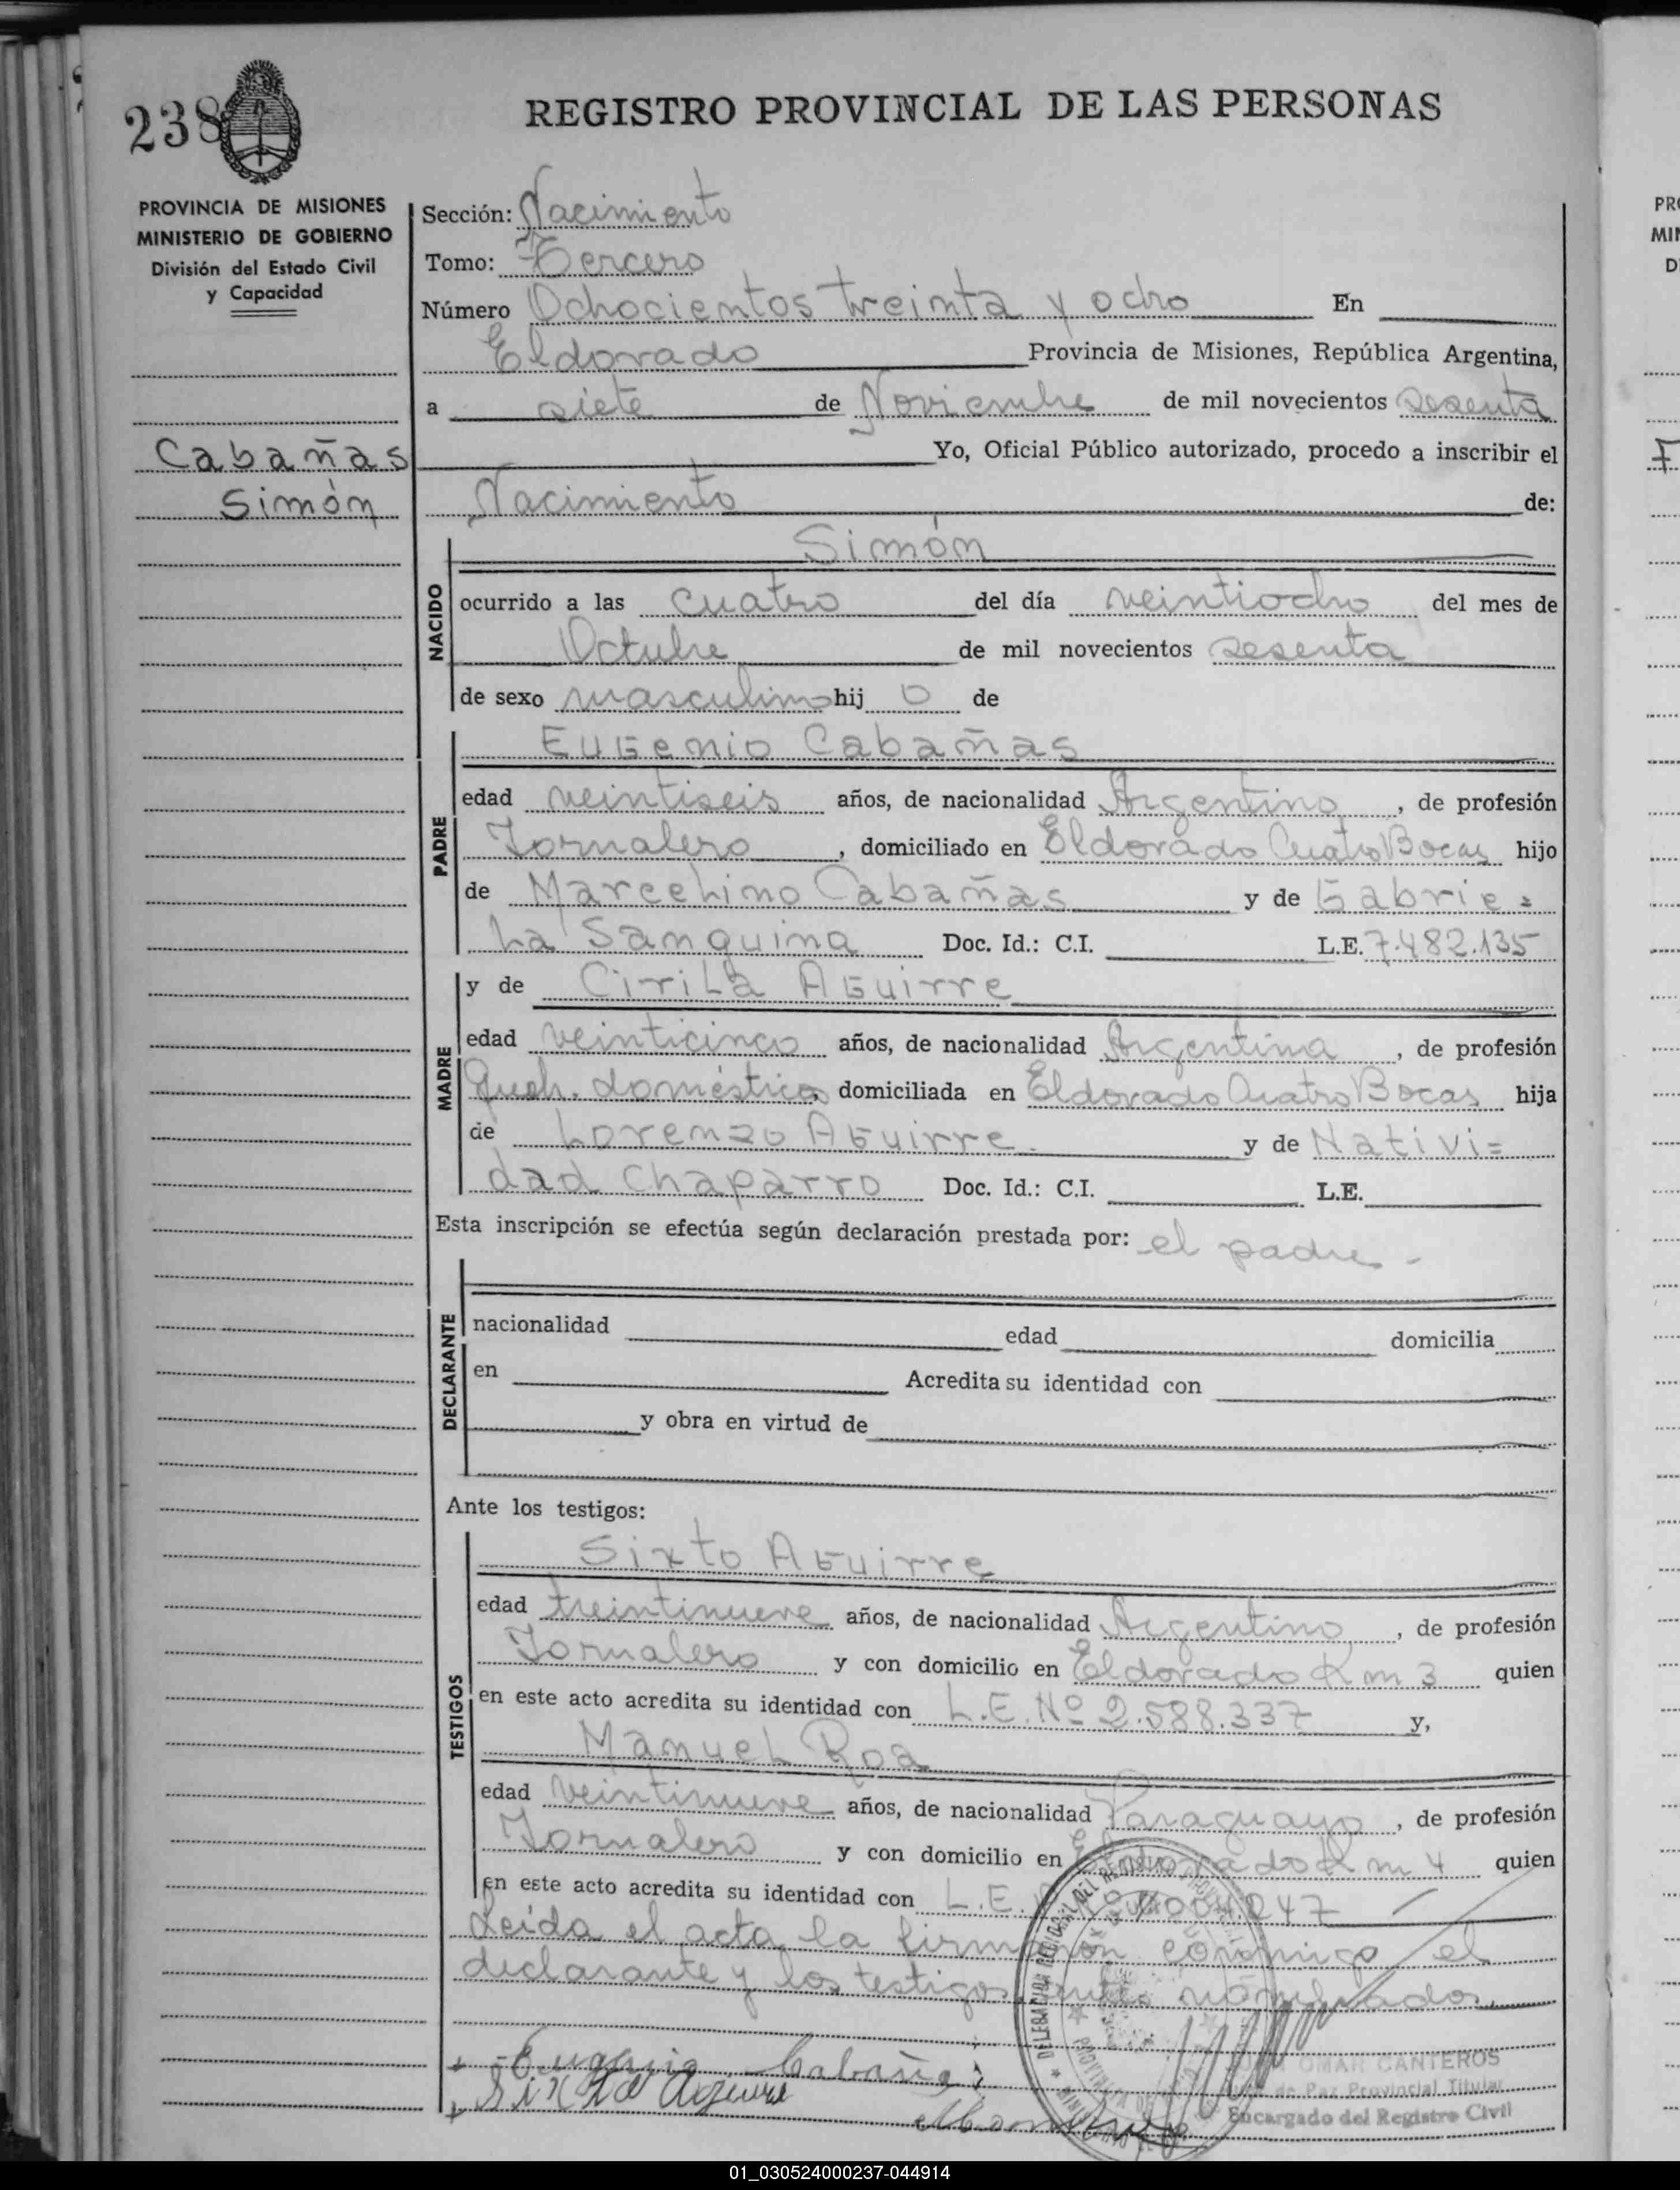 238
REGISTRO PROVINCIAL DE LAS PERSONAS
PROVINCIA DE MISIONES
MINISTERIO DE GOBIERNO
División del Estado Civil
y Capacidad
Cabañas
Simón
Sección: Nacimiento
Tomo: Tercero
Número Ochocientos treinta y ocho En
Eldorado Provincia de Misiones, República Argentina,
a siete de Noviembre de mil novecientos sesenta
Yo, Oficial Público autorizado, procedo a inscribir el
Nacimiento de:
NACIDO
Simón
ocurrido a las cuatro del día veintiocho del mes de
Octubre de mil novecientos sesenta
de sexo masculino hij o de
PADRE
Eugenio Cabañas
edad veintiseis años, de nacionalidad Argentino, de profesión
Jornalero, domiciliado en Eldorado Cuatro Bocas hijo
de Marcelino Cabañas y de Gabrie=
la Sanquina Doc. Id.: C.I. L.E. 7.482.135
MADRE
y de Cirila Aguirre
edad veinticinco años, de nacionalidad Argentina, de profesión
Queh. domésticos, domiciliada en Eldorado Cuatro Bocas hija
de Lorenzo Aguirre y de Nativi=
dad Chaparro Doc. Id.: C.I. L.E.
Esta inscripción se efectúa según declaración prestada por: el padre -
DECLARANTE
nacionalidad edad domicilia
en Acredita su identidad con
y obra en virtud de
Ante los testigos:
TESTIGOS
Sixto Aguirre
edad treintinueve años, de nacionalidad Argentino, de profesión
Jornalero y con domicilio en Eldorado Km 3 quien
en este acto acredita su identidad con L.E. Nº 2.588.337 y,
Manuel Roa
edad veintinueve años, de nacionalidad Paraguayo, de profesión
Jornalero y con domicilio en Eldorado Km 4 quien
en este acto acredita su identidad con L.E.
Leída el acta la firmaron conmigo el
declarante y los testigos nombrados
Eugenio Cabañas
Sixto Aguirre
OMAR CANTEROS
de Paz Provincial Titular
Encargado del Registro Civil
01_030524000237-044914